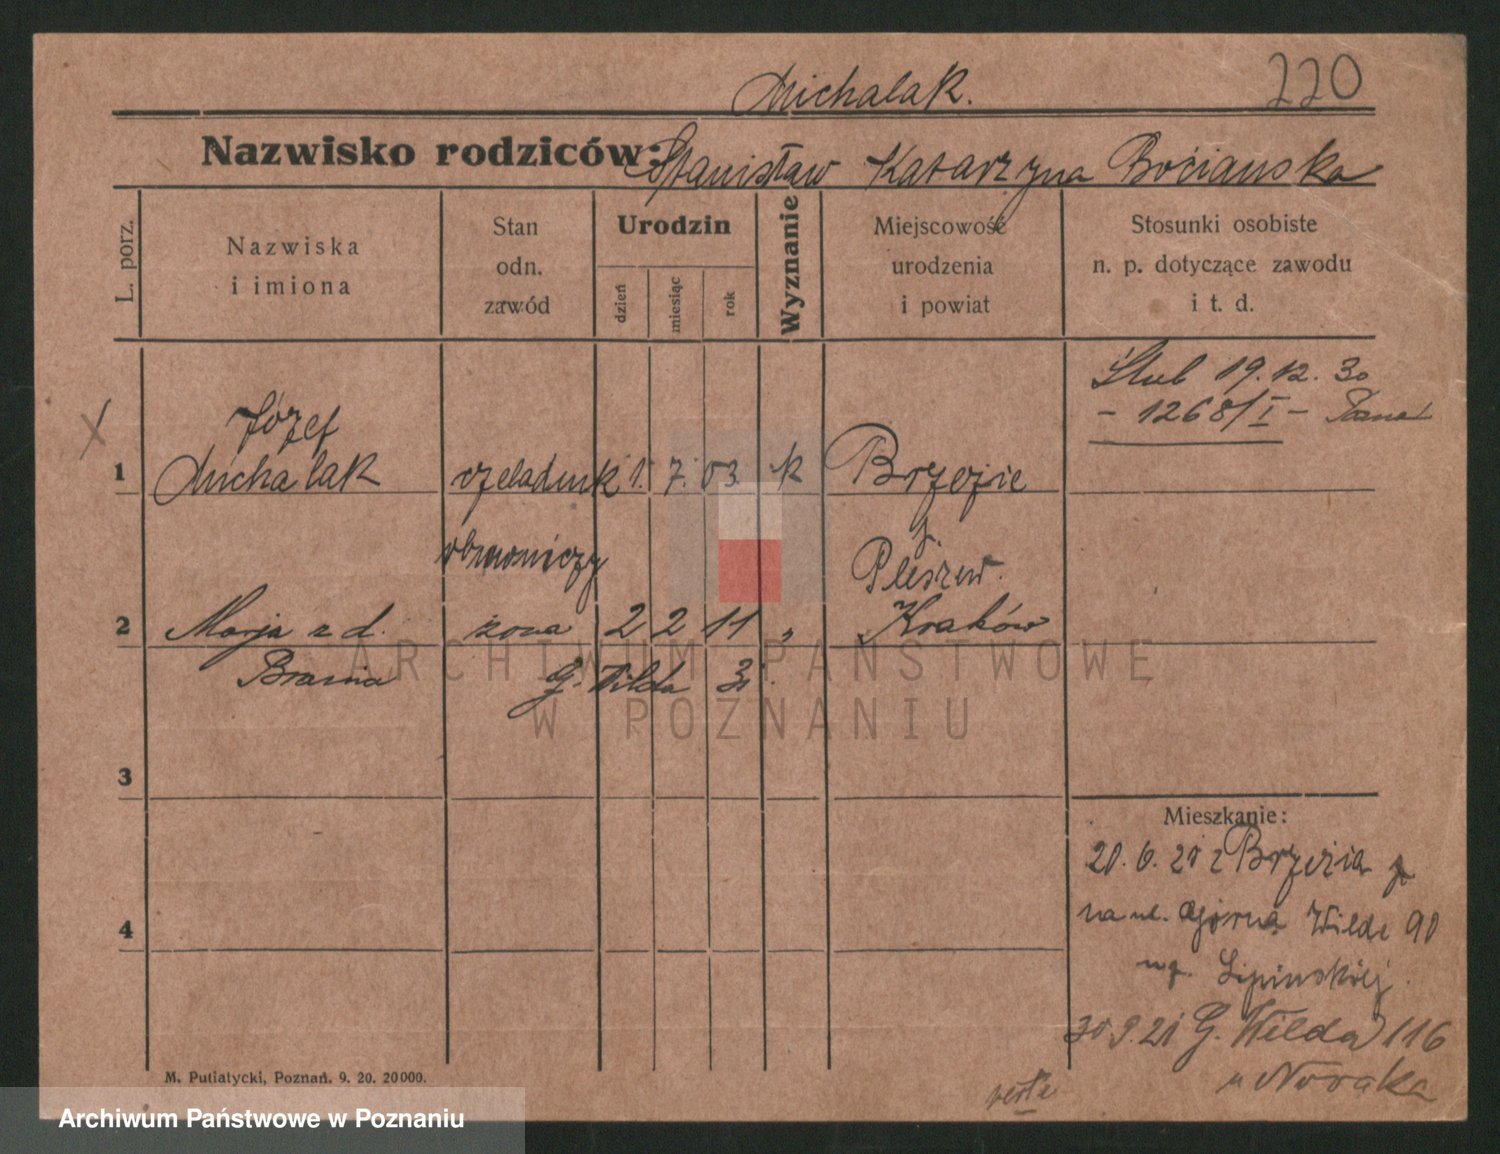 Michalak.
220
Nazwisko rodziców: Stanisław Katarzyna Bociańska
L. porz.
Nazwiska
i imiona
Stan
odn.
zawód
Urodzin
dzień
miesiąc
rok
Wyznanie
Miejscowość
urodzenia
i powiat
Stosunki osobiste
n. p. dotyczące zawodu
i t. d.
Ślub 19. 12. 30
- 1268/I -
X
Józef
1 Michalak czeladnik 1. 7. 03 k Brzezie
p.
Pleszew.
2 Marja z d. żona 2 2 11 „ Kraków
G. Wilda
3
4
Mieszkanie:
20. 6. 21 z Brzezia p
na ul. Górna Wilde 90
Lipińskiej.
30 9. 21 G. Wilda 116
u Nowaka
verte
M. Putiatycki, Poznań. 9. 20. 20000.
ARCHIWUM PAŃSTWOWE
W POZNANIU
Archiwum Państwowe w Poznaniu